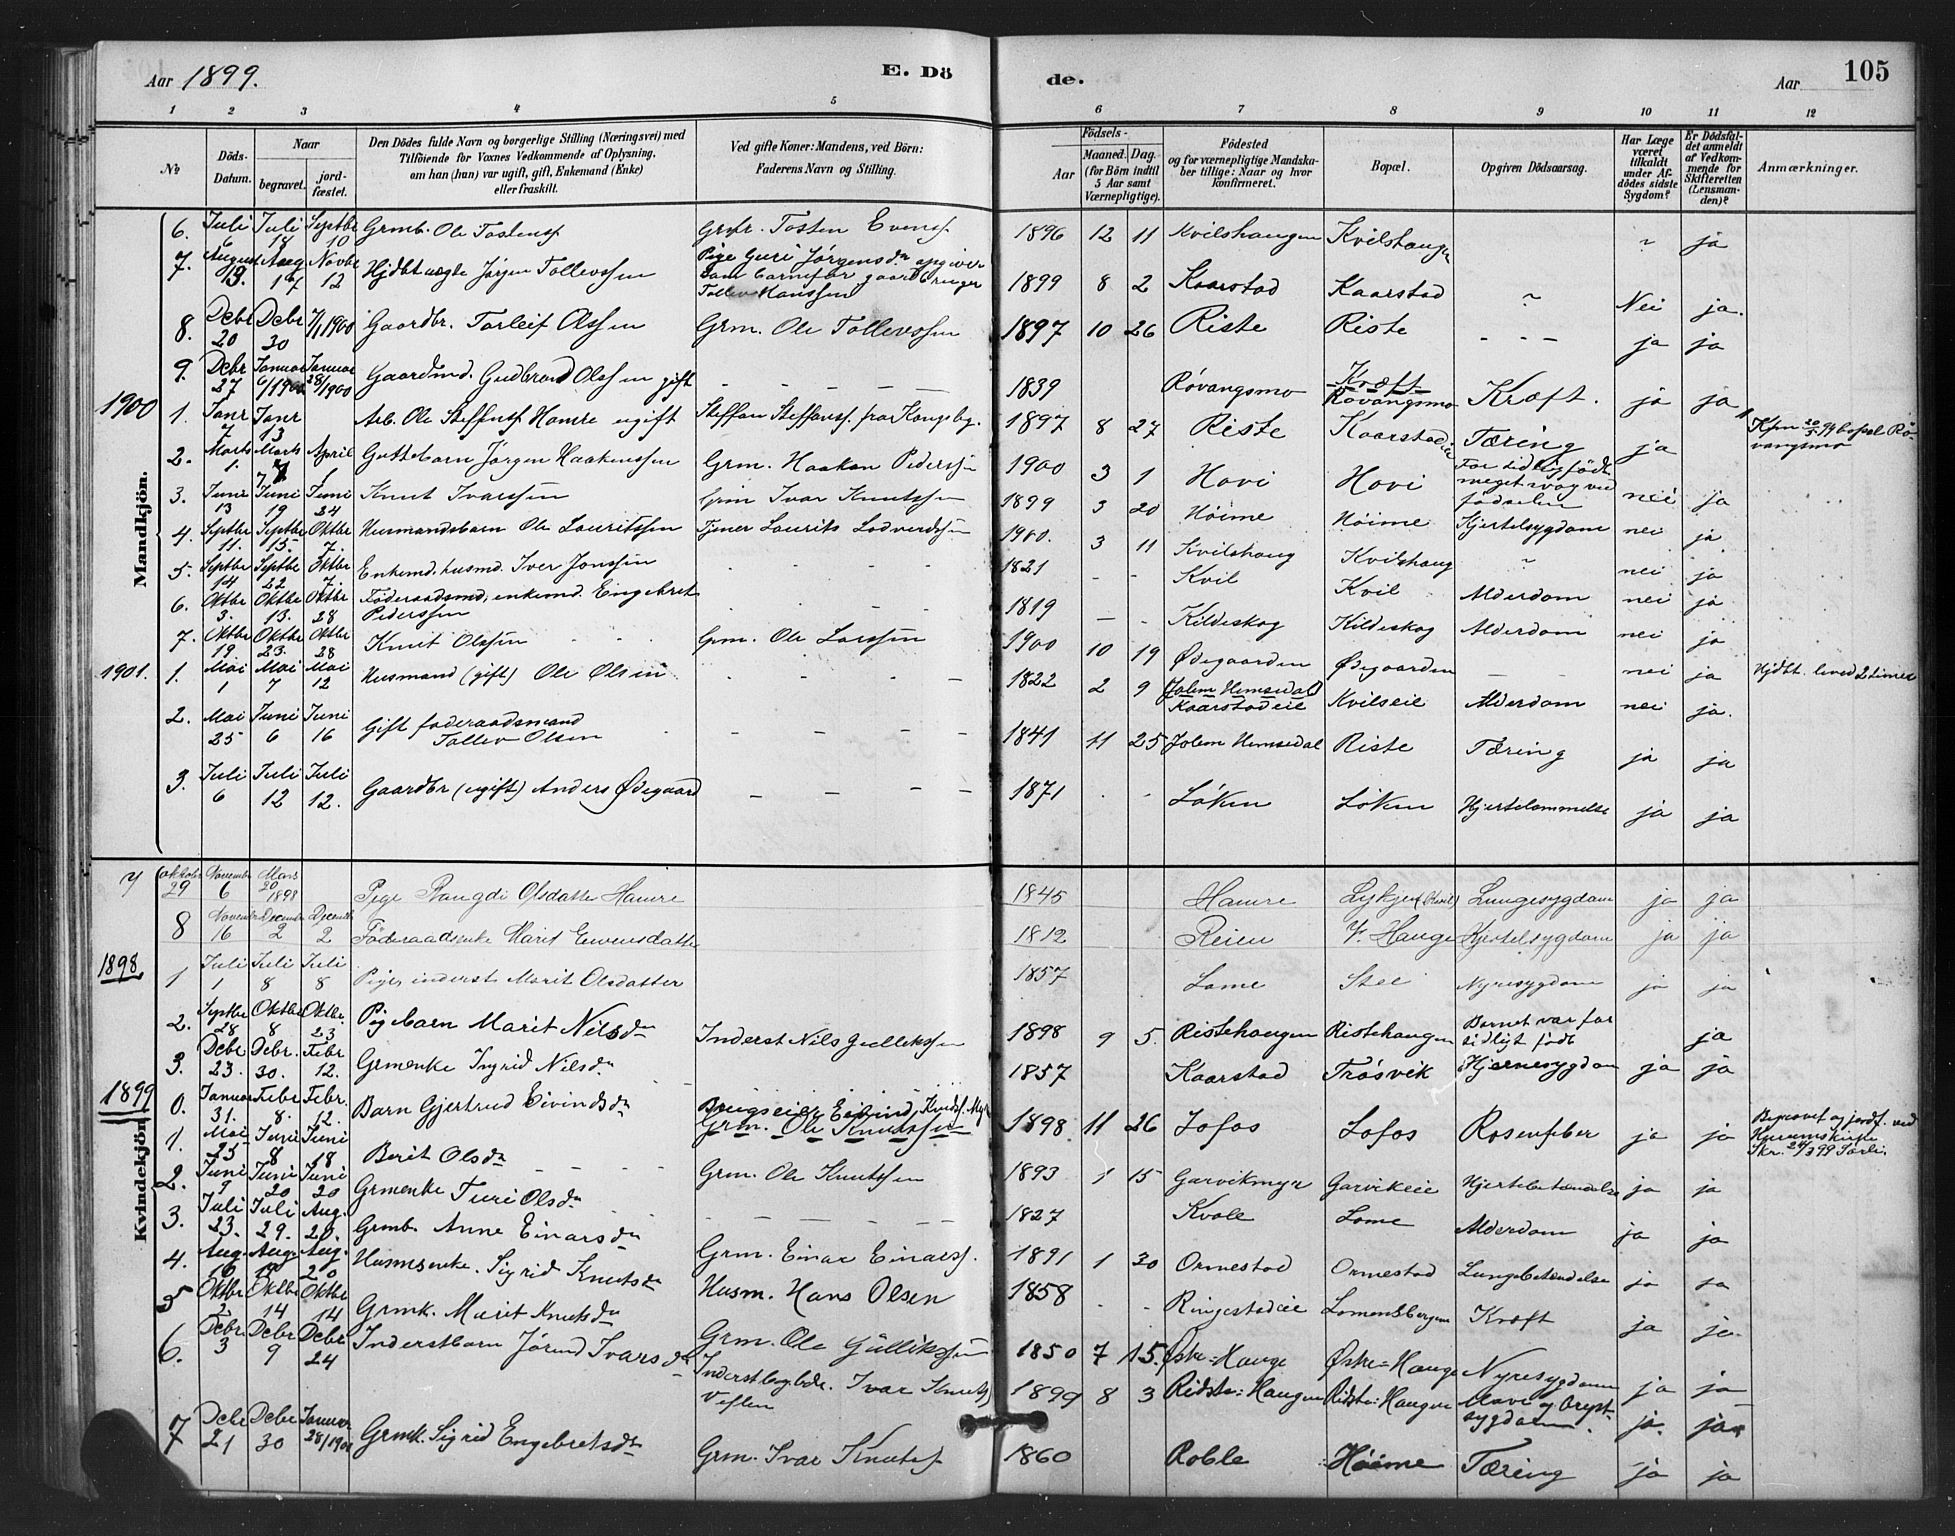 Aar 1899.
E. Dö
de.
Aar
105
1 2 3 4 5 6 7 8 9 10 11 12
No.
Döds-Datum.
Naar
begravet.
jord-fæstet.
Den Dödes fulde Navn og borgerlige Stilling (Næringsvei) med
Tilföiende for Voxnes Vedkommende af Oplysning,
om han (hun) var ugift, gift, Enkemand (Enke)
eller fraskilt.
Ved gifte Koner: Mandens, ved Börn:
Faderens Navn og Stilling.
Födsels-
Aar
Maaned. Dag.
(for Börn indtil
5 Aar samt
Værnepligtige).
Födested
og for værnepligtige Mandska-
ber tillige: Naar og hvor
konfirmeret.
Bopæl.
Opgiven Dödsaarsag.
Har Læge
været
tilkaldt
under Af-
dödes sidste
Sygdom?
Er Dödsfal-
det anmeldt
af Vedkom-
mende for
Skifteretten
(Lensman-
den)?
Anmærkninger.
Mandkjön.
6. Juli 6 Juli 18 Septbr 10 Grmb. Ole Tostens. Grbr. Tosten Evens. 1896 12 11 Kvilshaugen Kvilshaugen ja
7. August 13. Aug 17 Novbr 12 Hjdbt uægte Jørgen Tollevssen Pige Guri Jørgensdr opgiver
som barnefar gaardbruger
Tollev Hanssen 1899 8 2 Kaarstad Kaarstad Nei ja.
8. Debr 20 Debr 30 7/1 1900 Gaardbr. Torleif Olssen Grm. Ole Tollevssen 1897 10 26 Riste Riste - - - ja ja
9. Debr 27 Januar 6/1900 Januar 28/1900 Gaardmd. Gudbrand Olssen gift - - - - 1839 Røvangsmo Kræft Røvangsmo Kræft. ja ja
1900
1. Janr 7 Janr 13 Arb. Ole Steffens. Hamre ugift Steffen Steffenss. fra Kongsbg. 1897 8 27 Riste Kaarstadeie Tæring ja
2. Marts 1. Marts 7 April Guttebarn Jørgen Haakenssen Grm. Haakon Pederssen 1900 3 1 Hovi Hovi For tidlig født
meget svag ved
fødselen nei ja
3. Juni 13 Juni 19 Juni 24 Knut Ivarssen Grm Ivar Knutssen 1899 3 20 Høime Høime Hjertelsygdom nei ja
4. Septbr 11. Septbr 15. Oktbr 7. Husmandsbarn Ole Lauritssen Tjener Laurits Lodverdssen 1900. 3 11 Kvilshaug Kvilshaug nei ja
5. Septbr 14 Septbr 22 Oktbr 7. Enkemd. husmd. Iver Jonssen 1821 - - Kvil Kvil Alderdom nei ja
6. Oktbr 3. Oktbr 13. Oktbr 28 Føderaadsmd, enkemd. Engebret
Pederssen 1819 - - Kildeskog Kildeskog Alderdom nei ja
7. Oktbr 19 Oktbr 23. Oktbr 28 Knut Olssen Grm. Ole Larssen 1900 10 19 Ødegaarden Ødegaarden - - nei ja Hjdbt. leved 2 timer
1901.
1. Mai 1 Mai 7 Mai 12 Husmand (gift) Ole Olsen 1822 2 9 Jolem Hemsedal
Kaarstadeie Kvilseie Alderdom nei ja.
2. Mai 25 Juni 6 Juni 16 Gift føderaadsmand
Tollev Olsen 1841 11 25 Jolem Hemsedal Riste Tæring ja ja
3. Juli 6 Juli 12 Juli 12. Gaardbr (ugift) Anders Ødegaard - - - - 1871 Løken Løken Hjertelammelse ja ja
Kvindekjön
7 Oktober 29 November 6 Mars 20 1898 Pige Rangdi Olsdatter Hamre 1845 Hamre Lykjen (Kvil) Lungesygdom ja ja
8 November 16 December 2 December 2 Föderaadsenke Marit Evensdatter 1812 Reien V. Hauge Hjertelsygdom ja ja
1898
1 Juli 1 Juli 8 Juli 8 Pige, inderst Marit Olsdatter 1857 Lome Stee Nyresygdom ja ja
2. Septbr 28 Oktbr 8 Oktbr. 23 Pigebarn Marit Nilsdr Inderst Nils Gullikssen 1898 9 5. Ristehaugen Ristehaugen Barnet var for
tidligt født ja
3. Debr 23. Debr. 30. Febr 12. Grmenke Ingrid Nilsdr 1857 Kaarstad Trøsvik Hjernesygdom ja ja
1899
0. Januar 31. Febr 8. Febr. 12. Barn Gjertrud Eivindsdr Brugseier Eivind Knuds. Myr
Grm. Ole Knutssen 1898. 11 26 Lofos Lofos Rosenfeber ja ja
1. Mai 23 Juni 8 Juni 18 Berit Olsdr Grm. Ole Knutssen 1893 1 15 Garvikmyr Garvikeie Hjertebetændelse ja ja
2. Juni 9 Juni 20 Juni 20 Grmenke Turi Olsdr 1827 Kvale Lome Alderdom ja ja
3. Juli 23. Juli 29. Aug. 20. Grmb. Anne Einarsdr Grm. Einar Einarss. 1891 1 30 Ormestad Ormestad Lungebetændelse ja ja
4. Aug. 16 Aug. Aug. 20 Husmsenke. Sigrid Knutsdr Husm. Hans Olsen 1858 - - Ringestadeie Lomensbergene Kræft ja ja
5 Oktbr 2 Oktbr 14 Oktbr 14 Grmk. Marit Knutsdr Grm. Ole Gullikssen 1850 7 15. Østre=Hauge Østre=Hauge Nyresygdom ja ja
6. Debr. 3 Debr 9 Debr 24 Inderstbarn Jørund Ivarsdr Ivar Knuts.
Veflen 1899 8 3 Ridste=Haugen Ridste=Haugen Mave og Bryst-
sygdom. ja. ja.
7 Debr 21 Debr 30 Januar 28/1900 Grmk. Sigrid Engebretsdr Grm. Ivar Knuts. 1860 Roble Høime Tæring ja ja